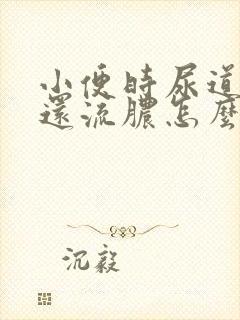 小便時尿道
還流膿怎麼
沉毅